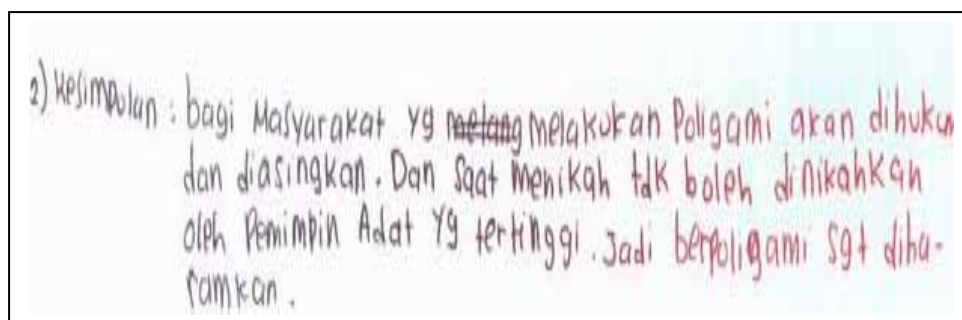 2) Kesimpulan : bagi Masyarakat yg melang melakukan Poligami akan dihukum
dan diasingkan. Dan Saat menikah tdk boleh dinikahkan
oleh Pemimpin Adat yg tertinggi. Jadi berpoligami sgt diha-
ramkan.